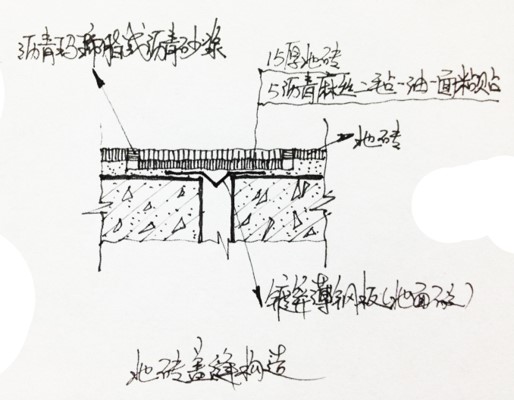 沥青玛𤧛脂或沥青砂浆
15厚地砖
5沥青麻丝二毡一油一面粘贴
地砖
镀锌薄钢板(地面砖)
地砖盖缝构造